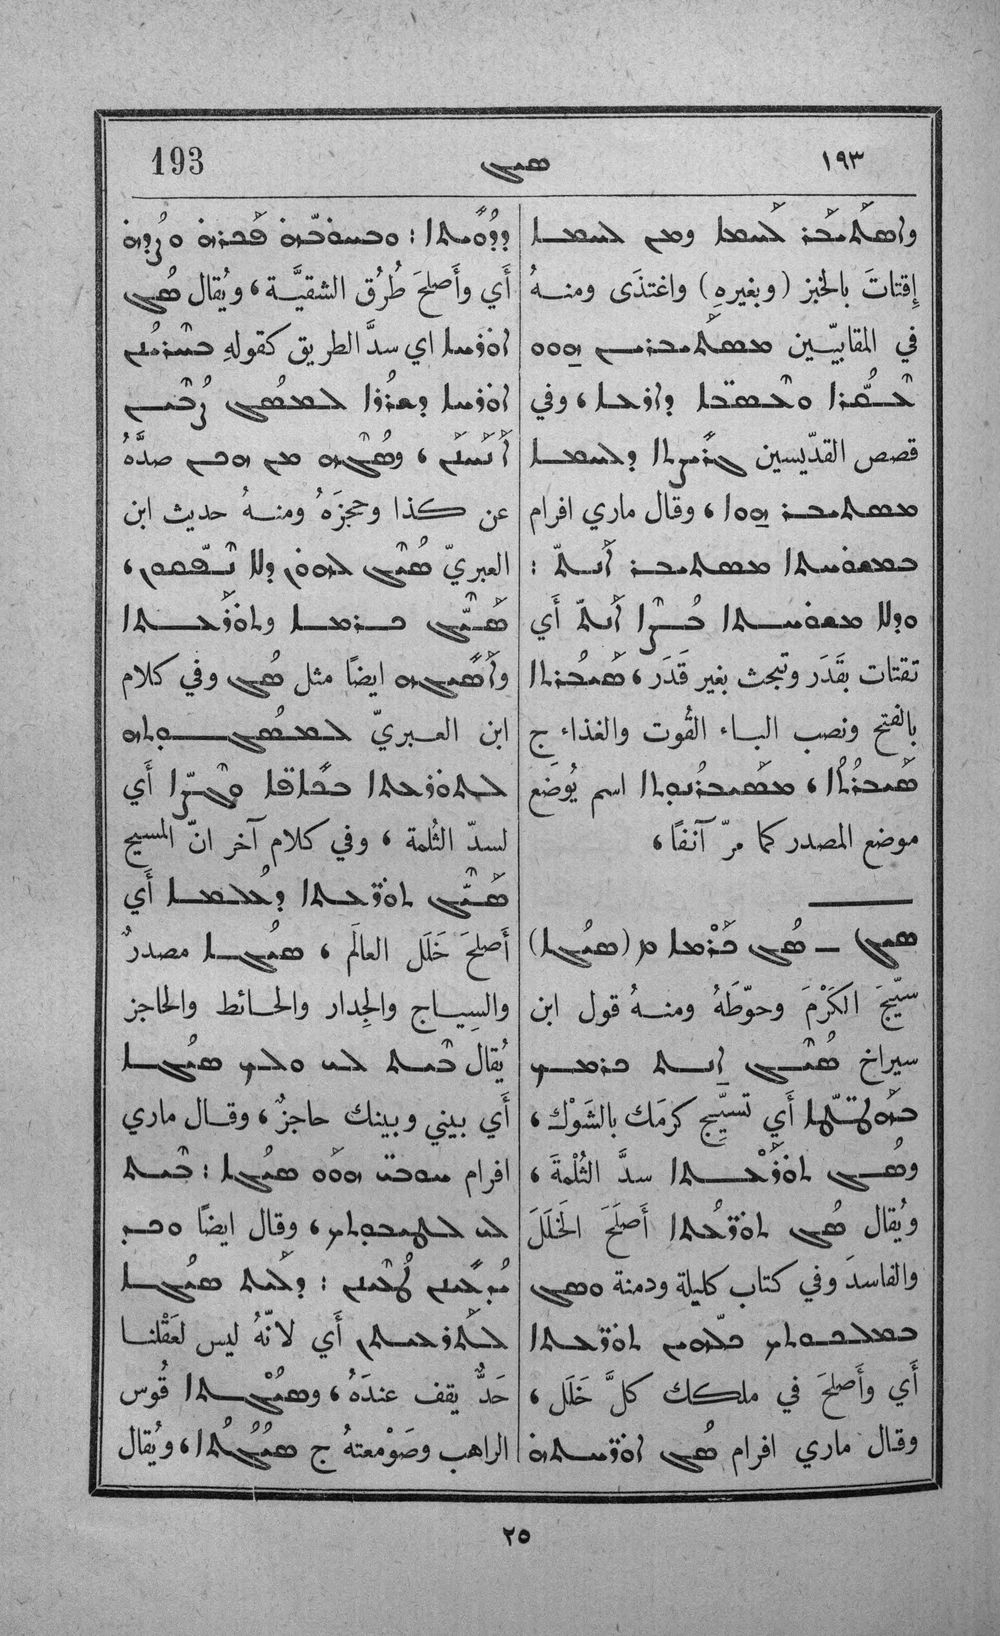 ١٩٣ ܣܝܓ 193
ܘܐܣܬܝܒܪ ܠܚܡܐ ܘܡܢ ܠܚܡܐ
إِقتاتَ بالخبز (وبغيرهِ) واغتذَى ومنهُ
في المقابيّين ܡܣܬܝܒܪܝܢ ܗܘܘ
ܘܥܣܒ̈ܐ ܕܐܪܥܐ ، وفي
قصص القدّيسين ܓܪܝܨܬܐ ܕܠܚܡܐ
ܡܣܬܝܒܪ ܗܘܐ ، وقال ماري افرام
ܒܡܫܘܚܬܐ ܡܣܬܝܒܪ ܐܢܬ :
ܘܕܠܐ ܡܫܘܚܬܐ ܒܨܐ ܐܢܬ أَي
تقتات بقَدَر وتبحث بغير قَدَر ، ܣܝܒܪܬܐ
بالفتح ونصب الباء القُوت والغذاء ج
ܡܣܝܒܪܢܘܬܐ اسم يُوضَع
موضع المصدر كما مرّ آنفًا ،
ܣܝܓ — ܣܓ ܟܪܡܐ ܡ (ܣܝܓܐ)
سيّجَ الكَرْمَ وحوّطَهُ ومنهُ قول ابن
سيراخ ܣܐܓ ܐܢܬ ܟܪܡܟ
أَي تسيّج كرمَك بالشَوْك ،
ܘܣܓ ܬܘܪܥܬܐ سدَّ الثُلْمةَ ،
ويُقال ܣܓ ܬܘܪ̈ܥܬܐ أَصلَحَ الخَلَلَ
والفاسدَ وفي كتاب كليلة ودمنة ܘܣܓ
ܒܡܠܟܘܬܟ ܟܠܗܝܢ ܬܘܪ̈ܥܬܐ
أَي وأَصلحَ في ملكك كلَّ خَلَل ،
وقال ماري افرام ܣܓ ܐܘܪ̈ܚܬܗ
ܕܕܘܝܬܐ :
أَي وأَصلحَ طُرُق الشقيَّة ، ويُقال ܣܓ
ܐܘܪܚܐ اي سدَّ الطريق كقولهِ
ܐܘܪܚܐ ܕܫܪܪܐ ܠܡܣܓ ܨܒܝܢ
صدَّهُ
عن كذا وحجزَهُ ومنهُ حديث ابن
العبريّ ܣܐܓ ܠܗܘܢ ܕܠܐ ܢܦܩܘܢ ،
ܣܝܓ ܟܪܡܐ ܘܬܘܪܥܬܐ
ܘܐܣܝܓܗ ايضًا مثل ܣܓ وفي كلام
ابن العبريّ
ܠܬܘܪܥܬܐ أَي
لسدّ الثُلمة ، وفي كلام آخر انّ المسيح
ܣܝܓ ܬܘܪ̈ܥܬܐ ܕܥܠܡܐ أَي
أَصلحَ خَلَل العالَم ، ܣܝܓܐ مصدرٌ
والسِياج والجِدار والحائط والحاجز
يُقال ܒܝܬ ܠܝ ܘܠܟ ܣܝܓܐ
أَي بيني وبينك حاجزٌ ، وقال ماري
افرام ܚܘܒܝ ܗܘܘ ܣܝܓܐ : ܒܝܬ
ܠܝ ܠܛܝܒܘܬܟ ، وقال ايضًا
ܕܠܝܬ ܣܝܓܐ
ܠܬܪܥܝܬܢ أَي لانّهُ ليس لعَقْلنا
حَدٌّ يقف عندَهُ ، ܘܣܝܓܬܐ قُوس
الراهب وصَوْمعتهُ ج ܣܝܓܬܐ ، ويُقال
٢٥